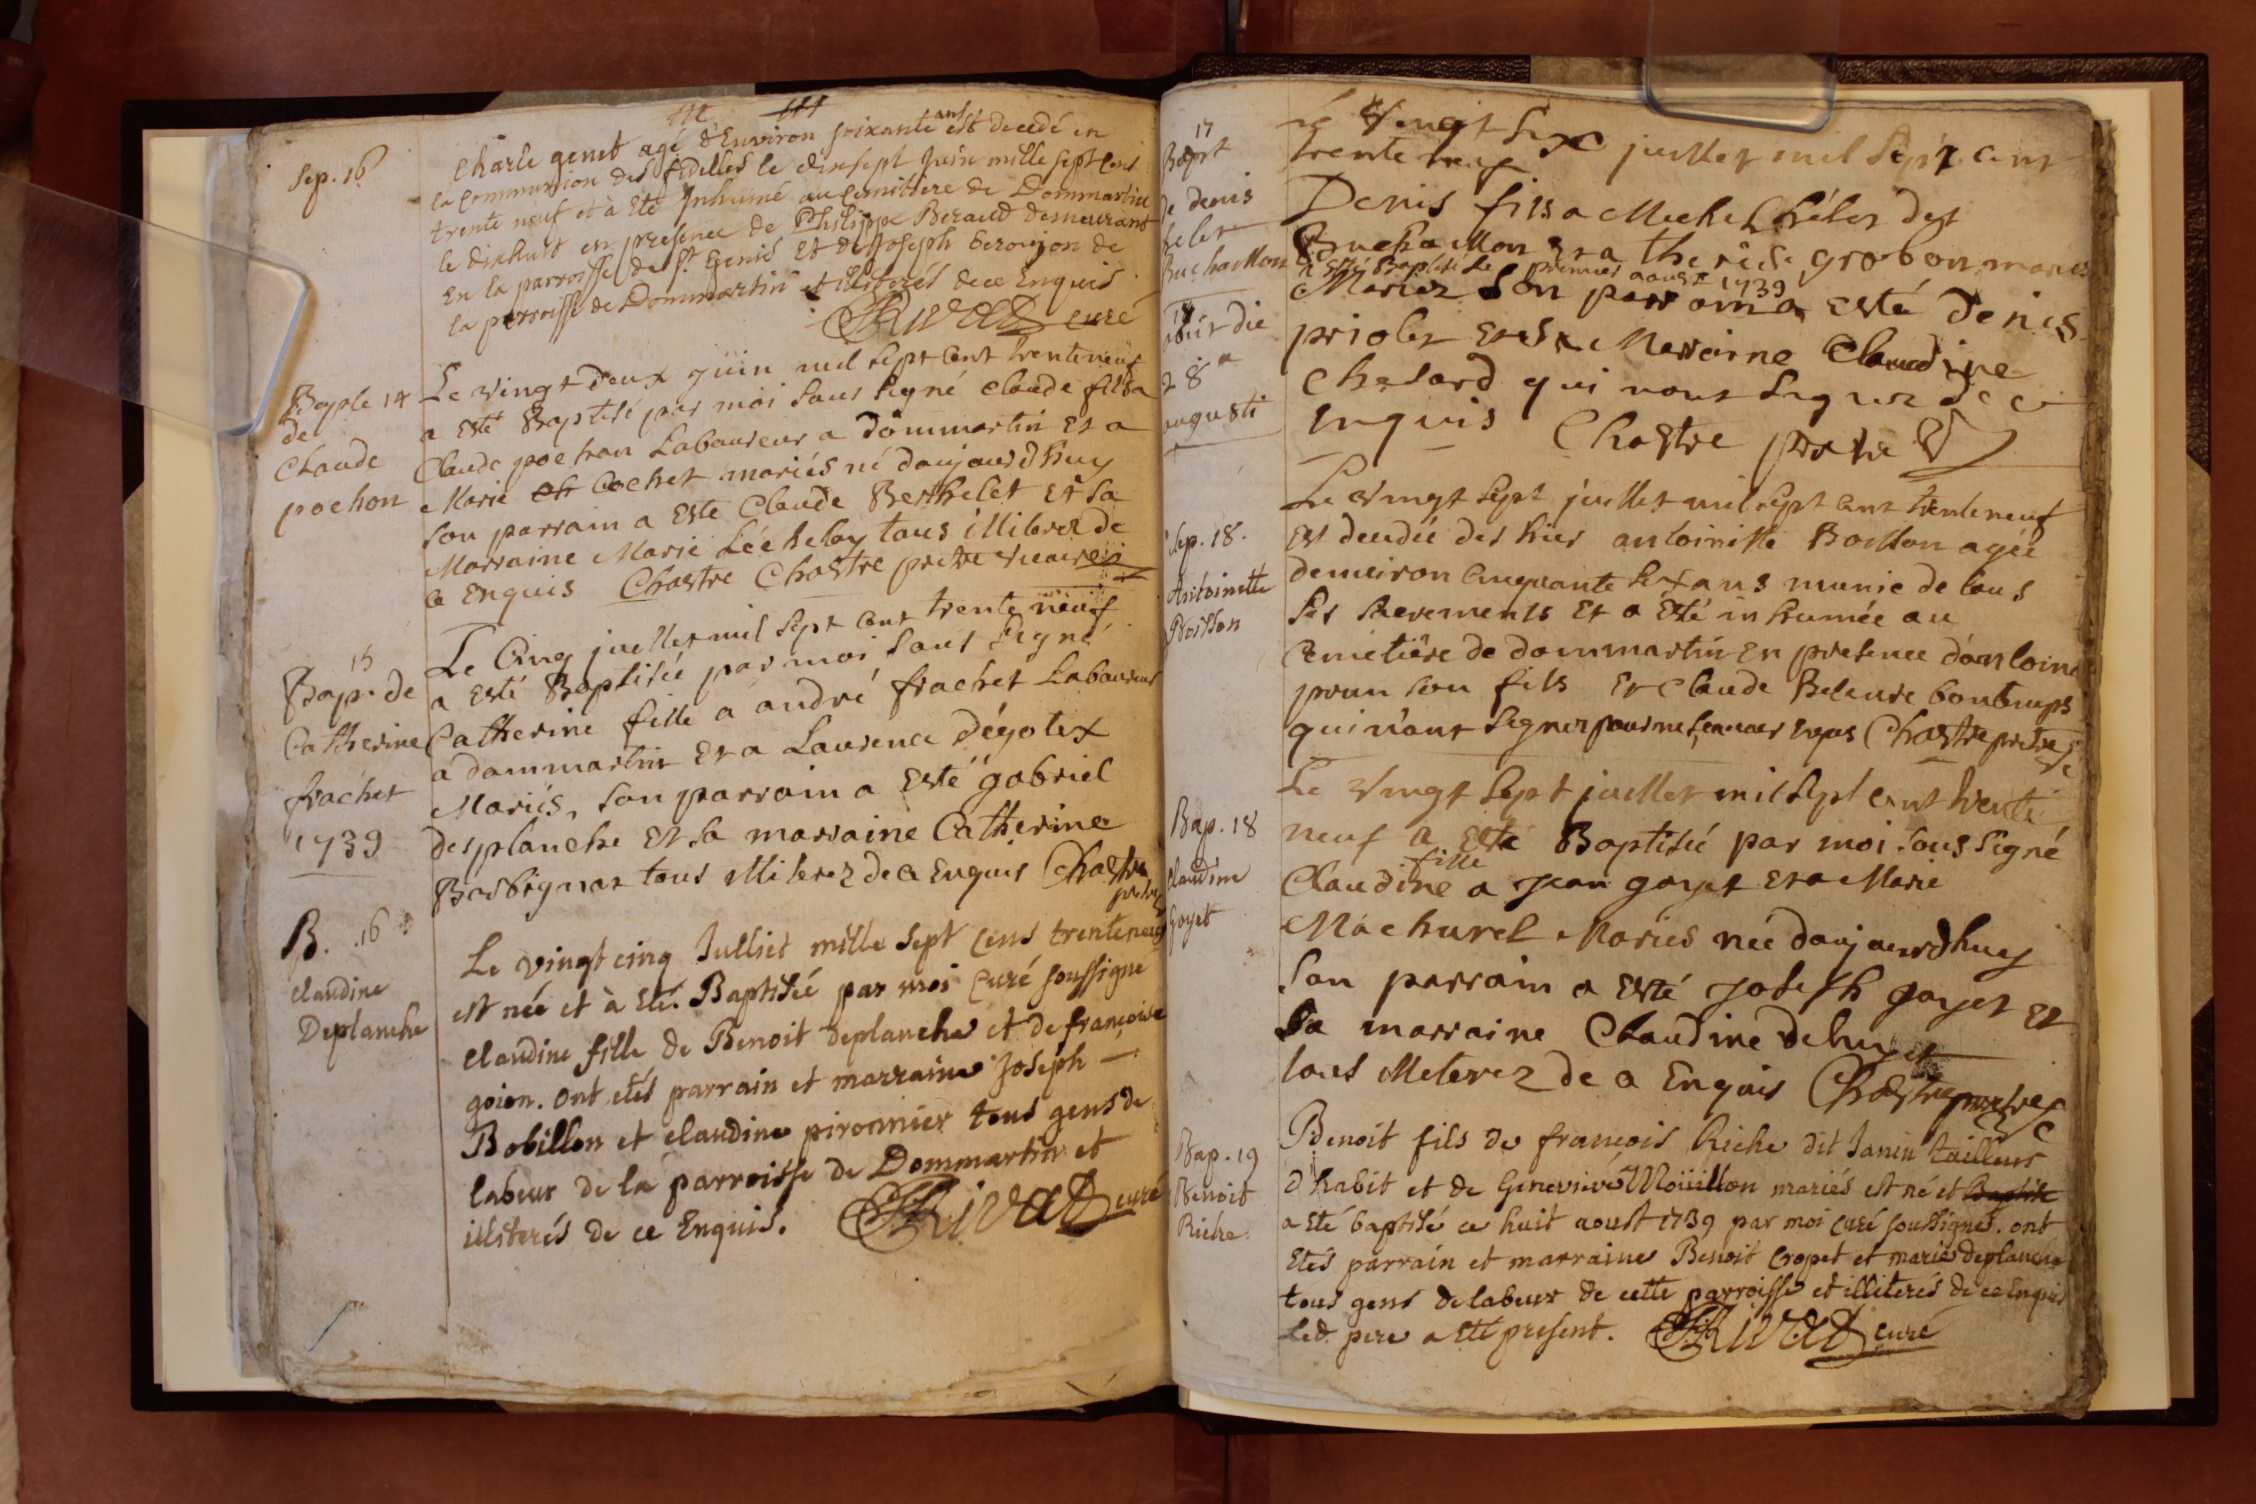 Sep. 16
Charle genet agé d'Environ soixante ans est decedé en
la Communion des fidelles le dixsept Juin mille sept cens
trente neuf et à Eté Inhumé au Cemittere de Dommartin
le dixhuit en presence de Philippe Beraud demeurant
En la parroisse de St Genis et de Joseph
la parroisse de Dommartin et illiterés de ce Enquis
Rivat curé
Bapte 14
de
Claude
pochon
Le vingt deux juin mil sept cent trente neuf
a esté Baptisé par moi sous signé Claude fils a
Claude pochon Laboureur a dommartin et a
Marie Cochet mariés né daujourdhuy
son parrain a esté Claude Berthelet et sa
Marraine Marie tous illiterez de
ce Enquis Chastre Chastre pretre vicaire
15
Bapt. de
Catherine
frachet
1739
Le Cinq juillet mil sept cent trente neuf
a esté Baptisée par moi sous signé
Catherine fille a andré frachet Laboureur
a dommartin et a Laurence dégotex
Mariés, son parrain a esté gabriel
desplanche et sa marraine Catherine
tous illiterez de ce Enquis Chastre
pretre
B. 16
claudine
Deplanche
Le vingt cinq Julliet mille sept cens trente neuf
est née et à Eté Baptisée par moi Curé soussigné
claudine fille de Benoit deplanche et de françoise
goion. ont etés parrain et marraine Joseph
Bobillon et claudine pironnier tous gens de
labeur de la parroisse de Dommartin et
illiterés de ce Enquis. Rivat curé
17
Bapt
de denis
Buchaillon
18
obiit die
2 8a
augusti
Le vingt six juillet mil sept cent
trente neuf
Denis fils a Michel dit
Buchaillon et a therese grobon mariez
a esté Baptisé le premier aoust 1739
Mariez son parrain a esté denis
priolet et sa Marraine Claudine
Chasard qui n'ont signez de ce
enquis Chastre pretre
Sep. 18.
Antoinette
Boisson
Le vingt sept juillet mil sept cent trente neuf
est decedée des hier antoinette agée
denviron cinquante six ans munie de tous
ses sacrements et a esté inhumée au
Cemetière de dommartin en presence
son fils et Claude bontemps
qui n'ont signer pour ne enquis Chastre pretre
Bap. 18
claudine
goyet
Le vingt sept juillet mil sept cent trente
neuf a esté Baptisée par moi sous signé
fille
Claudine a Jean goyet et a Marie
Machurel Mariés née daujourdhuy
son parrain a esté joseph goyet et
sa marraine Claudine
tous illeterez de ce Enquis Chastre pretre
Bap. 19
Benoit
Riche
Benoit fils de françois Riche dit Janin tailleur
d'habit et de Genevieve Moüillon mariés est né et Baptisé
a Eté baptisé ce huit aoust 1739 par moi curé soussigné. ont
Etés parrain et marraine Benoit Cropet et marie deplanche
tous gens de labeur de cette parroisse et illiterés de ce Enquis
Led. pere a Eté present. Rivat curé